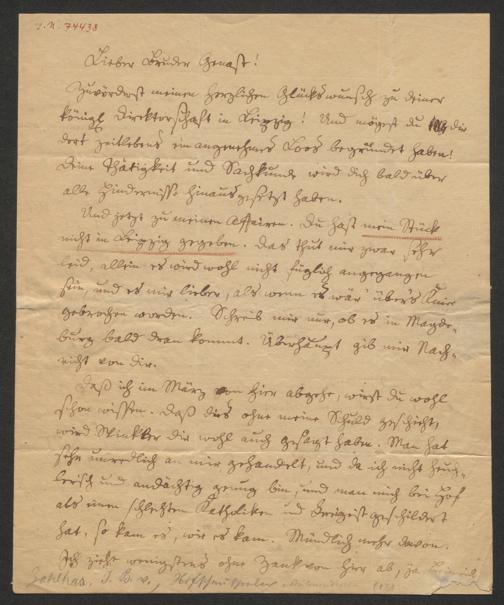 I.N. 74433
Lieber Bruder Genast!
Zuvörderst meinen herzlichen Glückswunsch zu deiner
königl Direktorschaft in Leipzig! Und mögest du dir
dort zeitlebens ein angenehmes Loos begründet haben!
Deine Thätigkeit und Sachkunde wird dich bald über
alle Hindernisse hinausgesetzt haben.
Und jetzt zu meinen Affairen. Du hast mein Stück
nicht in Leipzig gegeben. Das thut mir zwar sehr
leid, allein es wird wohl nicht füglich angegangen
seyn, und es mir lieber, als wenn es wär' über's Knie
gebrochen worden. Schreib mir nur, ob es in Magde-
burg bald dran kommt. Überhaupt gib mir Nach-
richt von dir.
Daß ich im März von hier abgehe, wirst du wohl
schon wissen. Daß dies ohne meine Schuld geschieht,
wird dir wohl auch gesagt haben. Man hat
sehr unredlich an mir gehandelt, und da ich nicht heuch-
lerisch und andächtig genug bin, und man mich bei Hof
als einen schlechten Katholiken und geschildert
hat, so kam es, wie es kam. Mündlich mehr davon.
Ich ziehe wenigstens ohne Zank von hier ab, ja
Zahlhas, J. B. v., Hofschauspieler